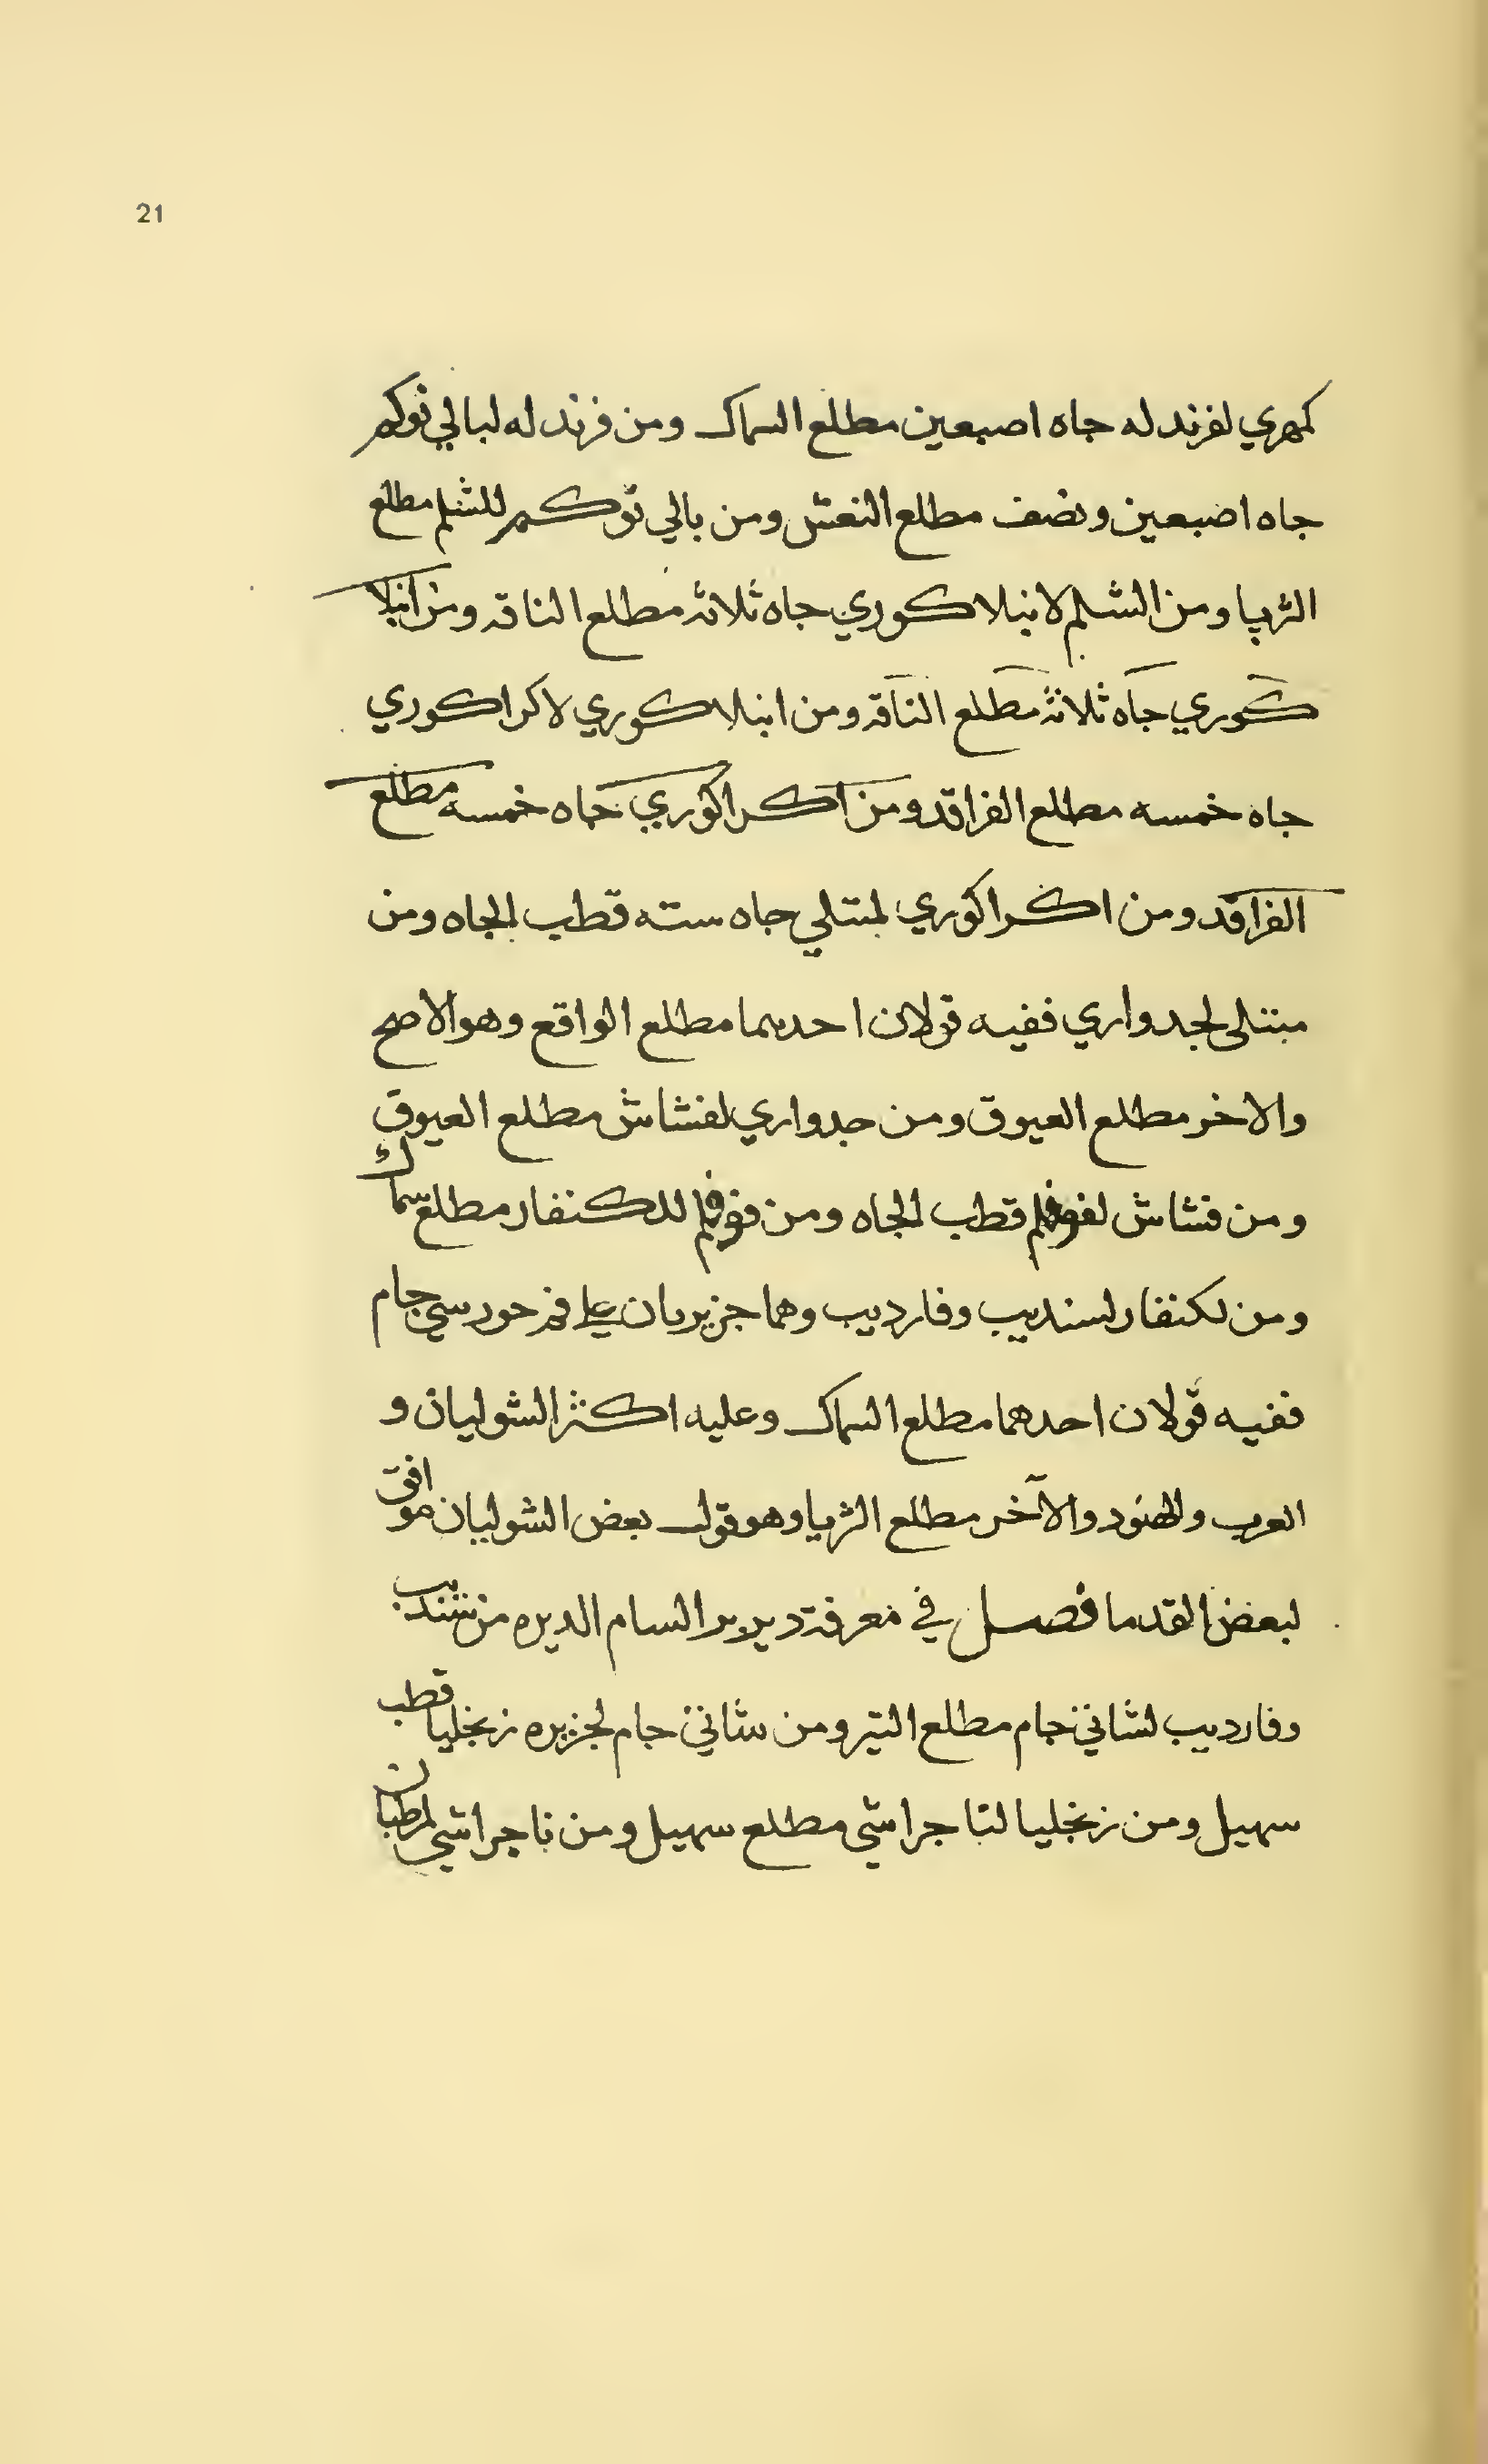 21
كمهري لفرند له جاه اصبعين مطلع السماك ومن فرند له لبالي توكم
جاه اصبعين ونصف مطلع النعش ومن بالي توكم للشلم مطلع
الثريا ومن الشلم لانبلا كوري جاه ثلاثه مطلع الناقه ومن انبلا
كوري جاه ثلاثه مطلع الناقه ومن انبلا كوري لاكراكوري
جاه خمسه مطلع الفراقد ومن اكراكوري جاه خمسه مطلع
الفراقد ومن اكراكوري لمنتلي جاه سته قطب الجاه ومن
منتلي لجدواري ففيه قولان احدهما مطلع الواقع وهو الاصح
والاخر مطلع العيوق ومن جدواري لفشاش مطلع العيوق
ومن فشاش قطب الجاه ومن فوفلم للكنفار مطلع سماك
ومن لكنفار لسنديب وفارديب وهما جزيرتان على فم خور ستي جام
ففيه قولان احدهما مطلع السماك وعليه اكثر الشوليان و
العرب والهنود والآخر مطلع الثريا وهو قول بعض الشوليان موافق
لبعض القدما فصل في معرفة ديرة بر السيام الديره من سنديب
وفارديب لشاتي جام مطلع التير ومن شاتي جام لجزيره زنجليا قطب
سهيل ومن زنجليا لناجراشي مطلع سهيل ومن ناجراشي لمرطبان